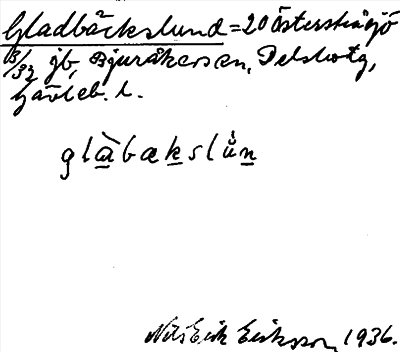 Gladbäckslund = 20 Österstråsjö
13/32 jb, Bjuråkers sn, Delsbo tg,
Gävleb. l.
glàbækslůn
Nils Erik Eriksson 1936.